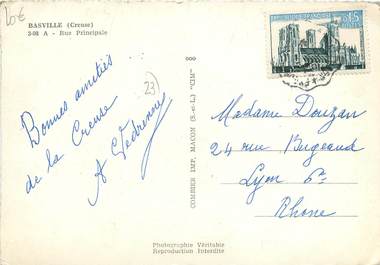 20€
BASVILLE (Creuse)
2-08 A - Rue Principale
23
Bonnes amitiés
de la Creuse
A Vedrenne
COMBIER IMP. MACON (S.-et-L.) "CIM"
Madame Douzan
24 rue Bugeaud
Lyon 6e
Rhone
Photographie Véritable
Reproduction Interdite